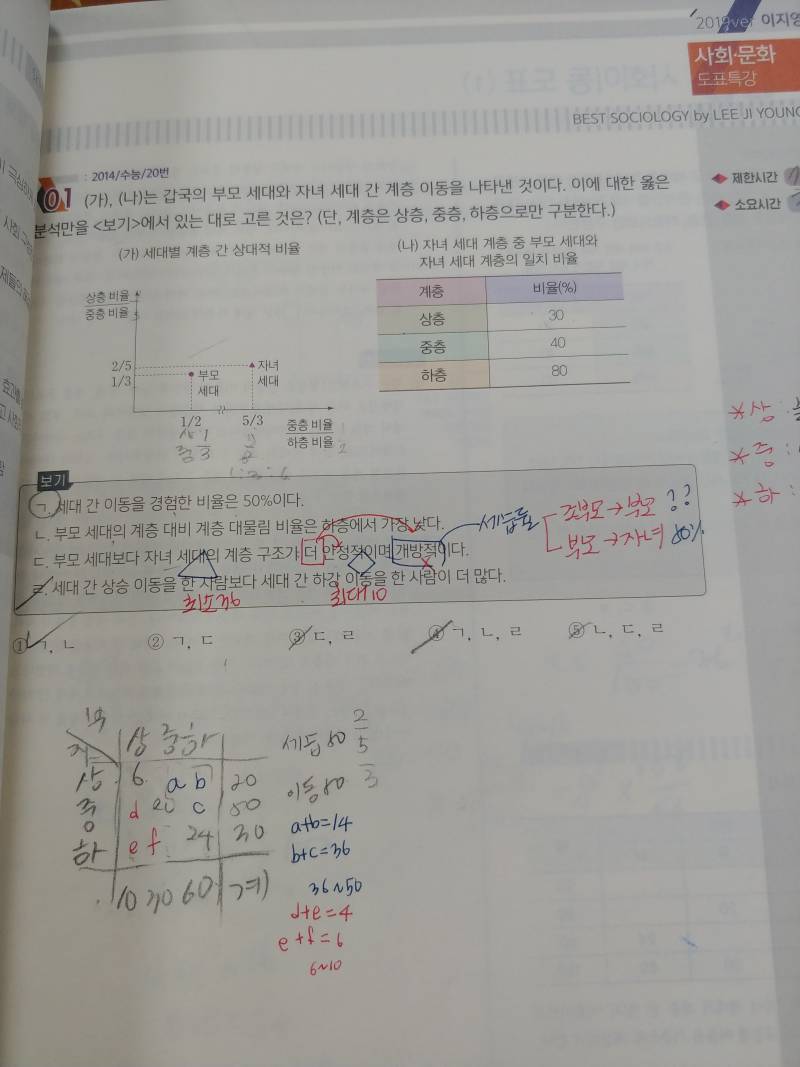 2019ver 이지영
사회·문화
도표특강
BEST SOCIOLOGY by LEE JI YOUNG
: 2014/수능/20번
01 (가), (나)는 갑국의 부모 세대와 자녀 세대 간 계층 이동을 나타낸 것이다. 이에 대한 옳은
분석만을 <보기>에서 있는 대로 고른 것은? (단, 계층은 상층, 중층, 하층으로만 구분한다.)
제한시간
소요시간
(가) 세대별 계층 간 상대적 비율
상층 비율
중층 비율
2/5
1/3
부모
세대
자녀
세대
1/2
5/3
중층 비율
하층 비율
(나) 자녀 세대 계층 중 부모 세대와
자녀 세대 계층의 일치 비율
계층 비율(%)
상층 30
중층 40
하층 80
상 1
중 3
1:3:6
상
중
하
보기
ㄱ. 세대 간 이동을 경험한 비율은 50%이다.
ㄴ. 부모 세대의 계층 대비 계층 대물림 비율은 하층에서 가장 낮다.
ㄷ. 부모 세대보다 자녀 세대의 계층 구조가 더 안정적이며 개방적이다.
ㄹ. 세대 간 상승 이동을 한 사람보다 세대 간 하강 이동을 한 사람이 더 많다.
세습률
조부모→부모 ??
부모→자녀 80%
최소36
최대10
① ㄱ, ㄴ ② ㄱ, ㄷ ③ ㄷ, ㄹ ④ ㄱ, ㄴ, ㄹ ⑤ ㄴ, ㄷ, ㄹ
상 중 하
상 6 a b 20
중 d 20 c 50
하 e f 24 30
10 30 60 계
2
5
3
a+b=14
b+c=36
36~50
d+e=4
e+f=6
6~10